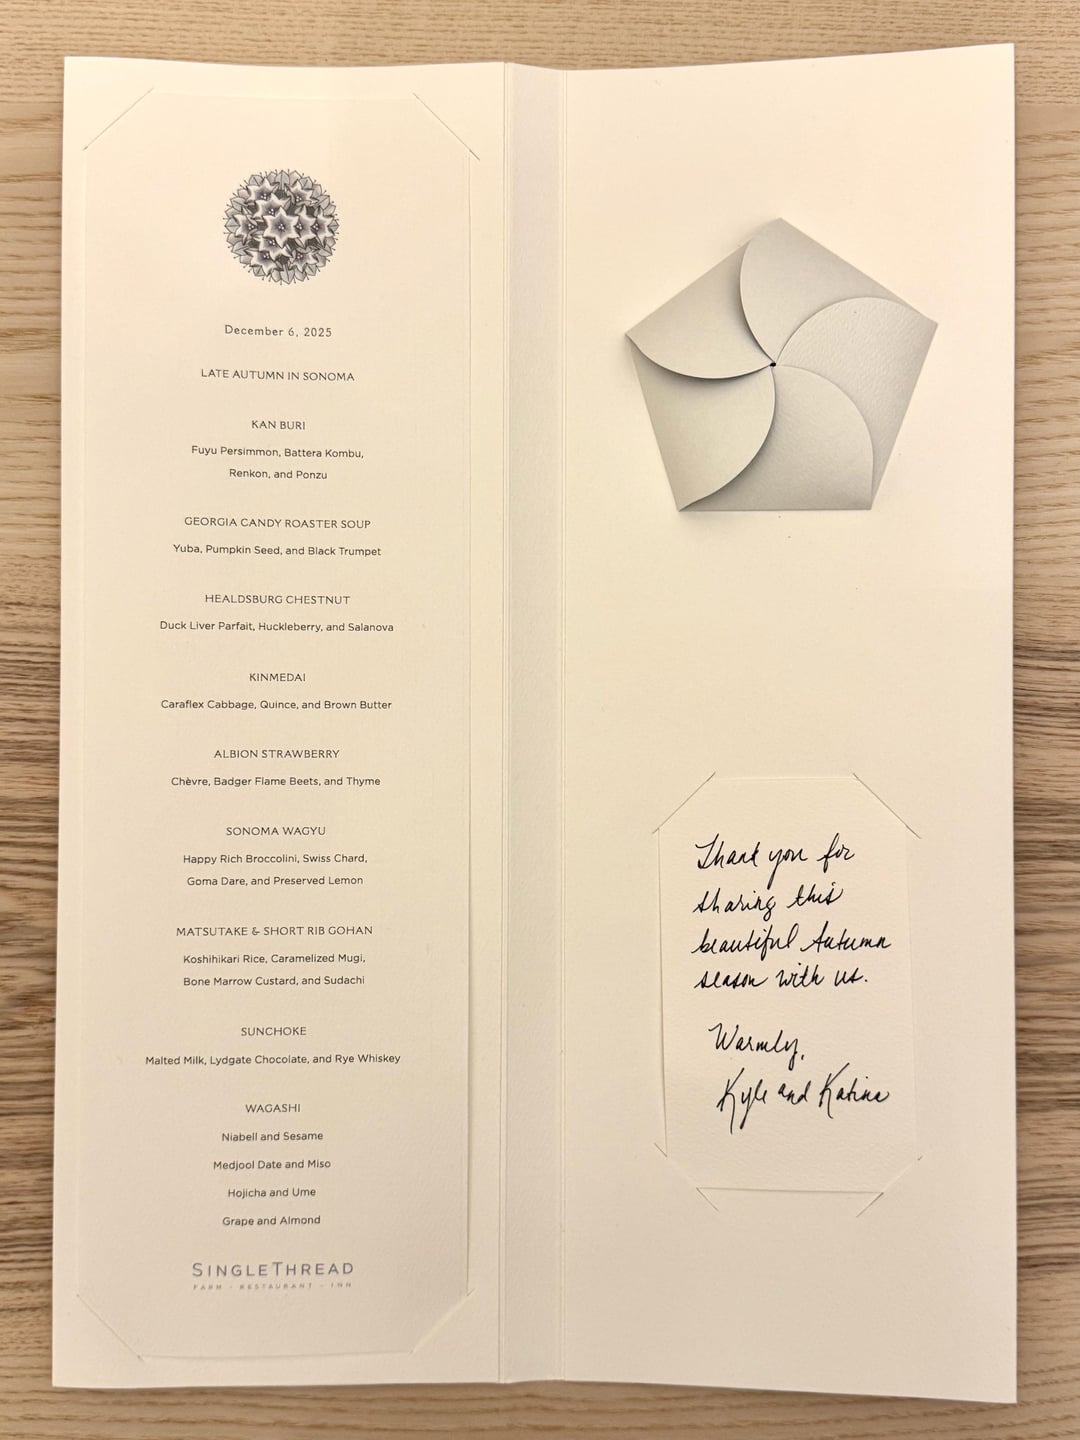 December 6, 2025
LATE AUTUMN IN SONOMA
KAN BURI
Fuyu Persimmon, Battera Kombu,
Renkon, and Ponzu
GEORGIA CANDY ROASTER SOUP
Yuba, Pumpkin Seed, and Black Trumpet
HEALDSBURG CHESTNUT
Duck Liver Parfait, Huckleberry, and Salanova
KINMEDAI
Caraflex Cabbage, Quince, and Brown Butter
ALBION STRAWBERRY
Chèvre, Badger Flame Beets, and Thyme
SONOMA WAGYU
Happy Rich Broccolini, Swiss Chard,
Goma Dare, and Preserved Lemon
MATSUTAKE & SHORT RIB GOHAN
Koshihikari Rice, Caramelized Mugi,
Bone Marrow Custard, and Sudachi
SUNCHOKE
Malted Milk, Lydgate Chocolate, and Rye Whiskey
WAGASHI
Niabell and Sesame
Medjool Date and Miso
Hojicha and Ume
Grape and Almond
SINGLETHREAD
FARM - RESTAURANT - INN
Thank you for
sharing this
beautiful Autumn
season with us.
Warmly,
Kyle and Katina